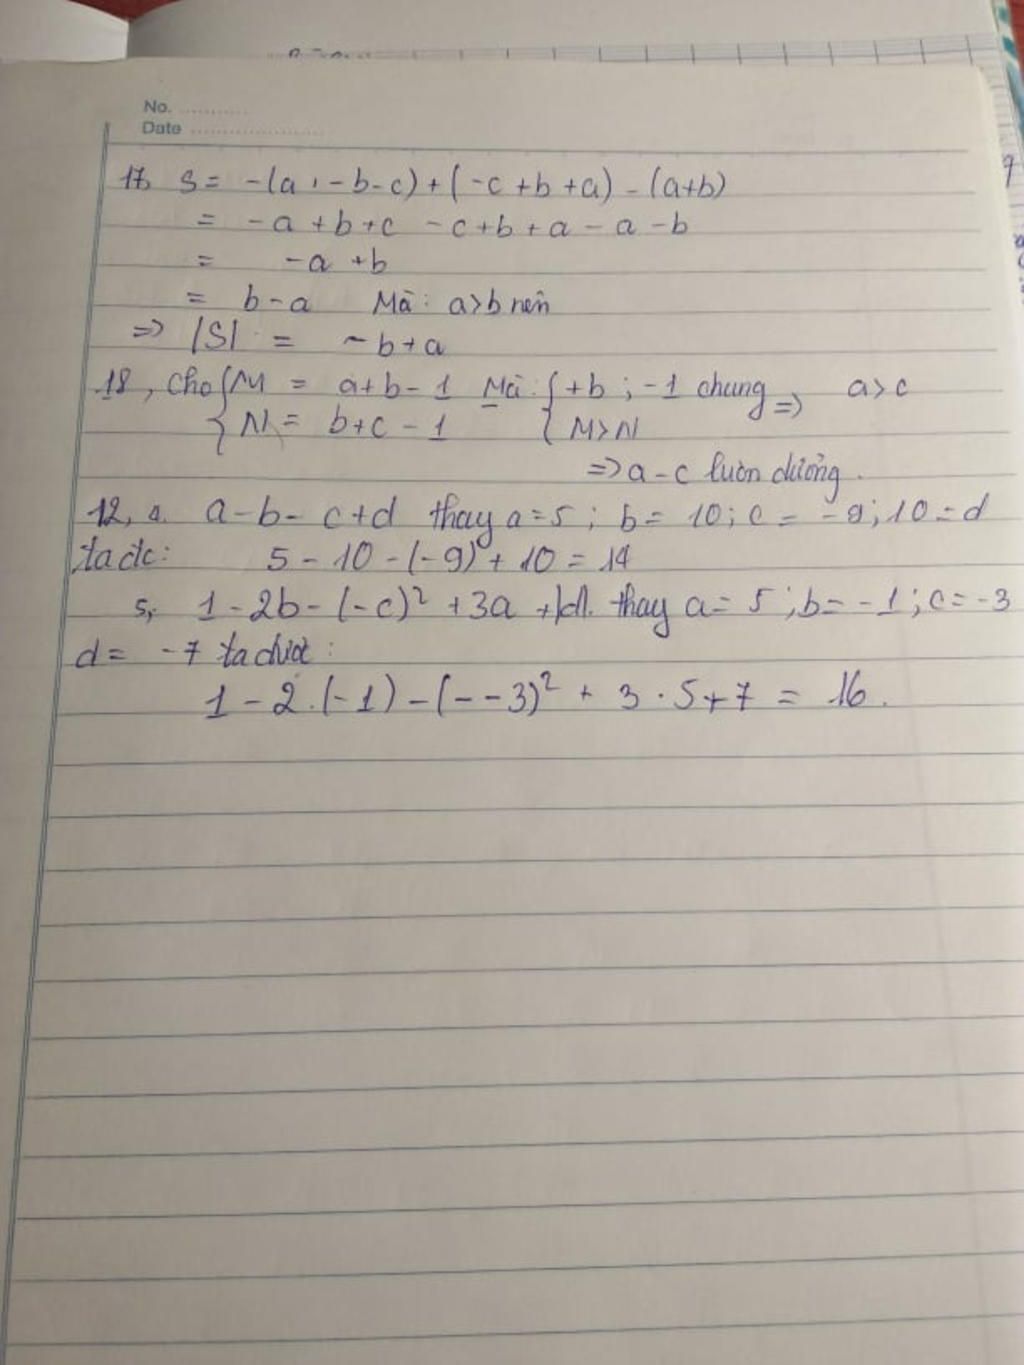 No. ..........
Date ....................
17, S = -(a, -b-c) + (-c + b + a) - (a+b)
= -a + b + c - c + b + a - a - b
= -a + b
= b - a Mà: a > b nên
=> |S| = -b + a
18, Cho { M = a + b - 1 Mà: { +b ; -1 chung => a > c
{ N = b + c - 1 { M > N
=> a - c luôn dương.
12, a. a - b - c + d thay a = 5 ; b = 10 ; c = -9 ; 10 = d
ta đc: 5 - 10 - (-9) + 10 = 14
5, 1 - 2b - (-c)² + 3a + |d|. thay a = 5 ; b = -1 ; c = -3
d = -7 ta được:
1 - 2.(-1) - (--3)² + 3 . 5 + 7 = 16.